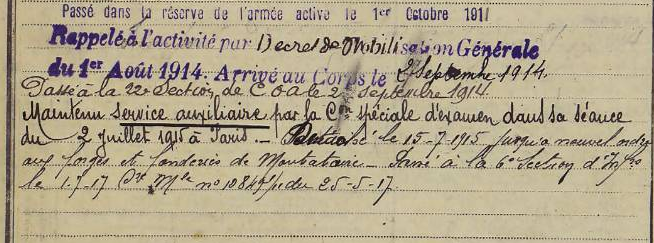 Passé dans la réserve de l'armée active le 1er Octobre 1911
Rappelé à l'activité par Décret de Mobilisation Générale
du 1er Août 1914. Arrivé au Corps le 2 Septembre 1914.
Passé à la 22e Section de C.O.A le 2 septembre 1914
Maintenu service auxiliaire par la Cion spéciale d'examen dans sa séance
du 2 juillet 1915 à Paris. Détaché le 15-7-1915 jusqu'à nouvel ordre
aux forges et fonderies de Montataire. Passé à la 6e Section d'
le 1-7-17 Cre Mlle n° du 25-5-17.